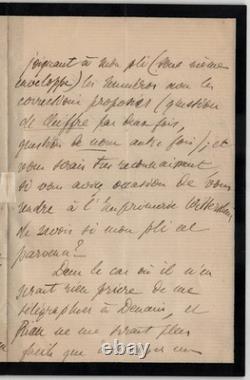 joignant à mon pli (sous même
enveloppe) les numéros
corrections proposées (question
de chiffre par deux fois,
question de nom autre fois) ; et
vous serais très reconnaissant
si vous aviez occasion de vous
rendre à l'Imprimerie
de savoir si mon pli est
parvenu ?
Dans le cas où il n'en
serait rien prière de me
télégraphier à Denain, et
Rien ne me serait plus
facile que
© ebay